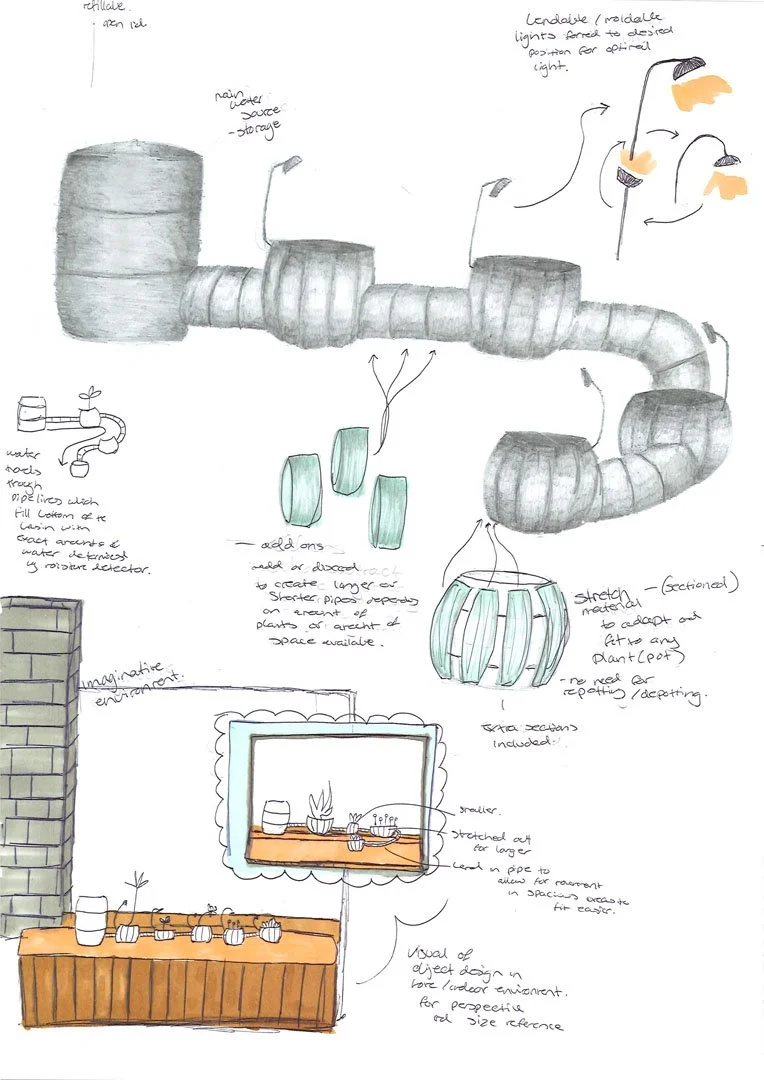 refillable
open lid
main
water
source
- storage
bendable / moldable
lights forred to desired
position for optimal
light.
water
travels
trough
pipelines which
fill bottom of te
basin with
exact amounts of
water determined
by moisture detector.
- add ons
add or discard
to create larger or
shorter pipes depends
on amount of
plants or amount of
space available.
stretch - (sectioned)
material
to adapt and
fit to any
plant (pot)
- no need for
repotting / depotting.
extra sections
included.
imaginative
environment.
smaller.
stretched out
for larger
bend in pipe to
allow for movement
in spacious areas to
fit easier.
visual of
object design in
home / indoor environment.
for perspective
and size reference